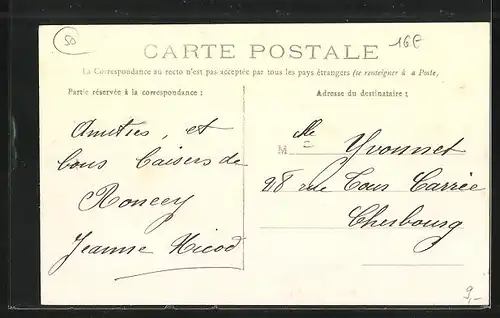 50
16€
CARTE POSTALE
La Correspondance au recto n'est pas acceptée par tous les pays étrangers (se renseigner à a Poste,
Partie réservée à la correspondance :
Adresse du destinataire :
Amitiés, et
bons baisers de
Roncey
Jeanne Nicod
M lle Yvonnet
28 rue Tour Carrée
Cherbourg
9,-